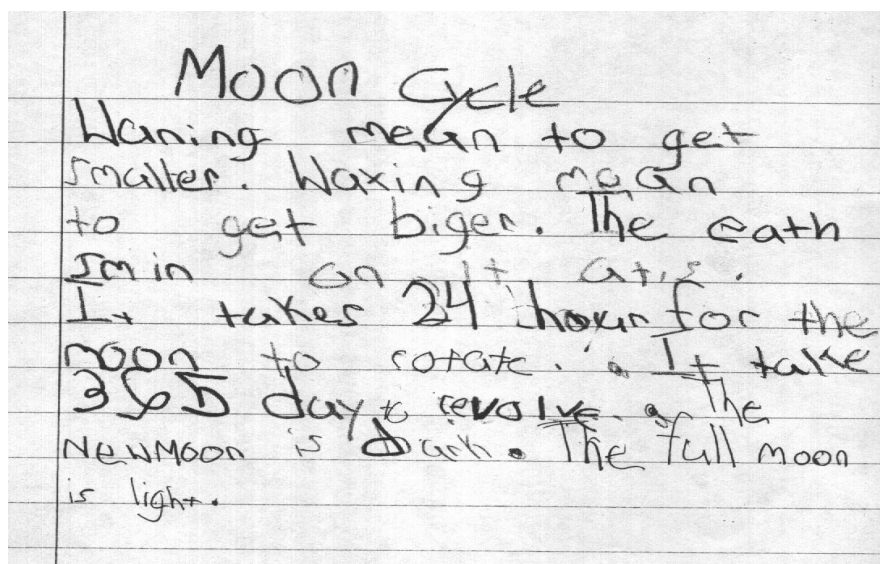 Moon Cycle
Waning mean to get
smaller. Waxing mean
to get biger. The eath
on it
It takes 24 hour for the
moon to rotate. It take
365 day to revolve. The
New Moon is dark. The full moon
is light.